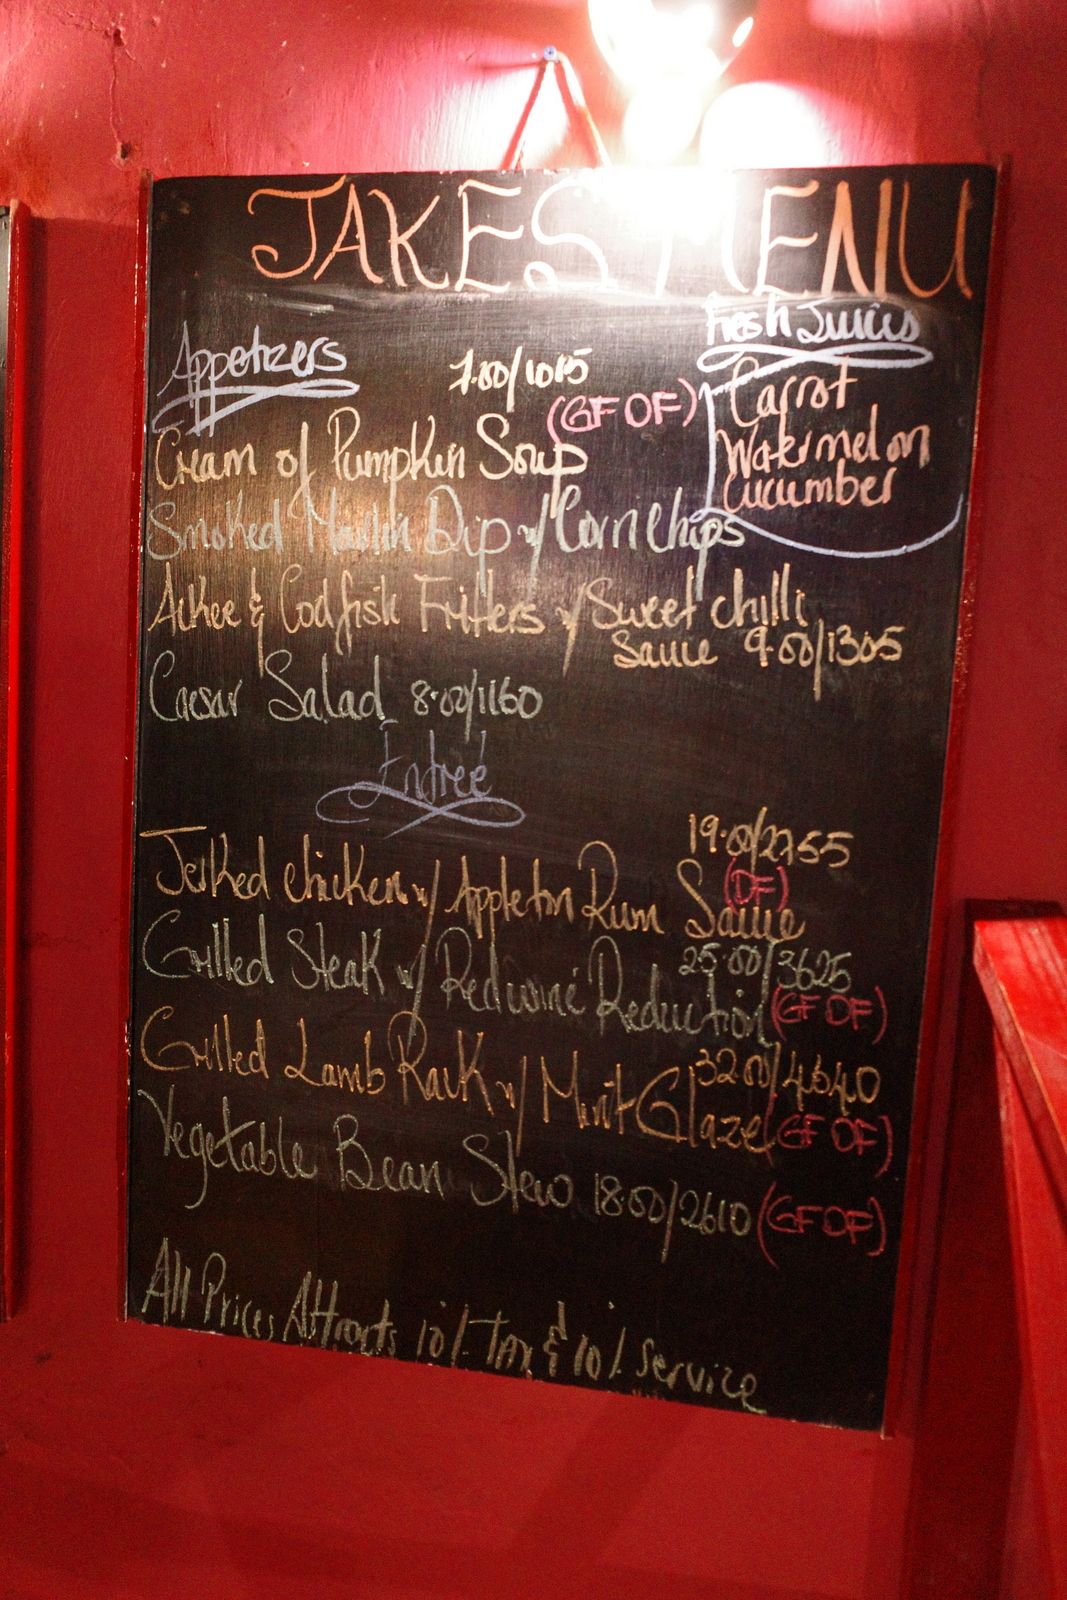 JAKES MENU
Fresh Juices
Carrot
Watermelon
Cucumber
Appetizers
7.00/1015
(GF DF)
Cream of Pumpkin Soup
Smoked Marlin Dip w/ Corn Chips
Ackee & Codfish Fritters w/ Sweet chilli
Sauce 9.00/1305
Caesar Salad 8.00/1160
Entreé
19.00/2755
(DF)
Jerked chicken w/ Appleton Rum Sauce
25.00/3625
Grilled Steak w/ Redwine Reduction (GF DF)
32.00/4640
Grilled Lamb Rack w/ Mint Glaze (GF DF)
Vegetable Bean Stew 18.00/2610 (GF DF)
All Prices Attracts 10% Tax & 10% Service